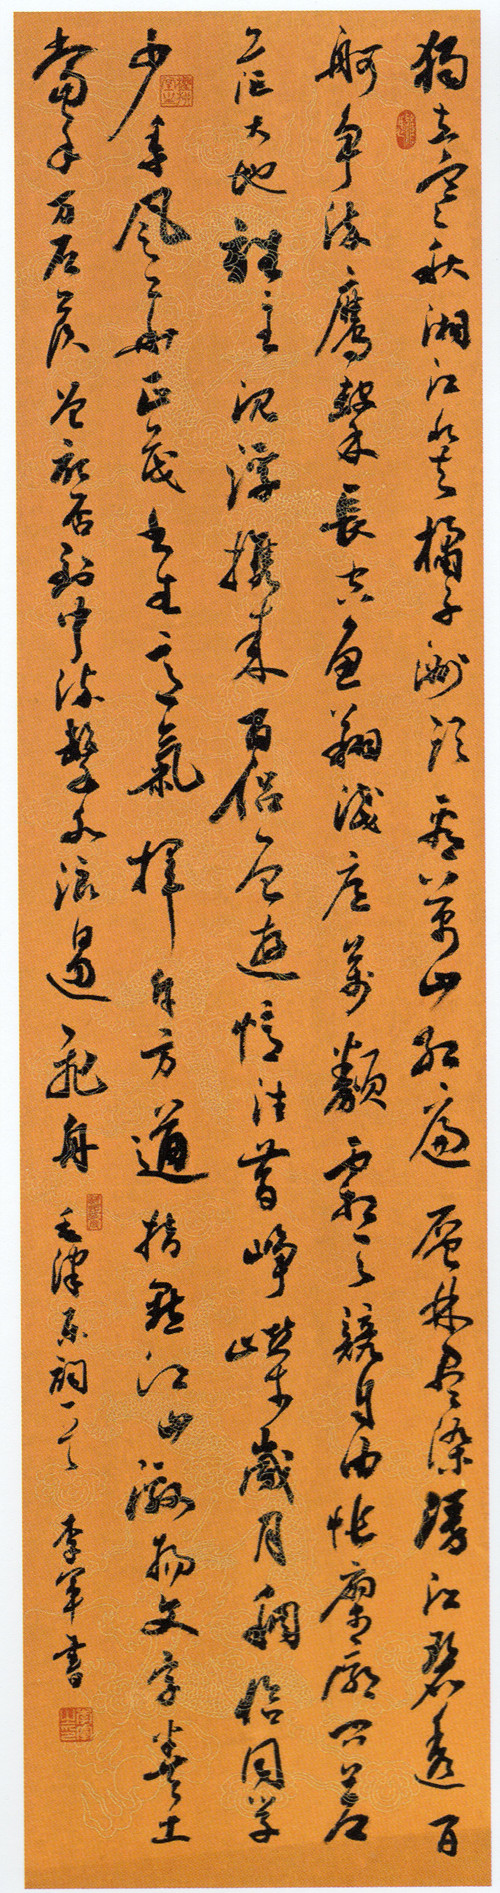 獨立寒秋湘江北去橘子洲頭看萬山紅遍層林盡染漫江碧透百
舸爭流鷹擊長空魚翔淺底萬類霜天競自由悵寥廓問蒼
茫大地誰主沉浮攜來百侶曾遊憶往昔崢嶸歲月稠恰同學
少年風華正茂書生意氣揮斥方遒指點江山激揚文字糞土
當年万戶侯曾記否到中流擊水浪遏飛舟 毛澤東詞一首 李軍書